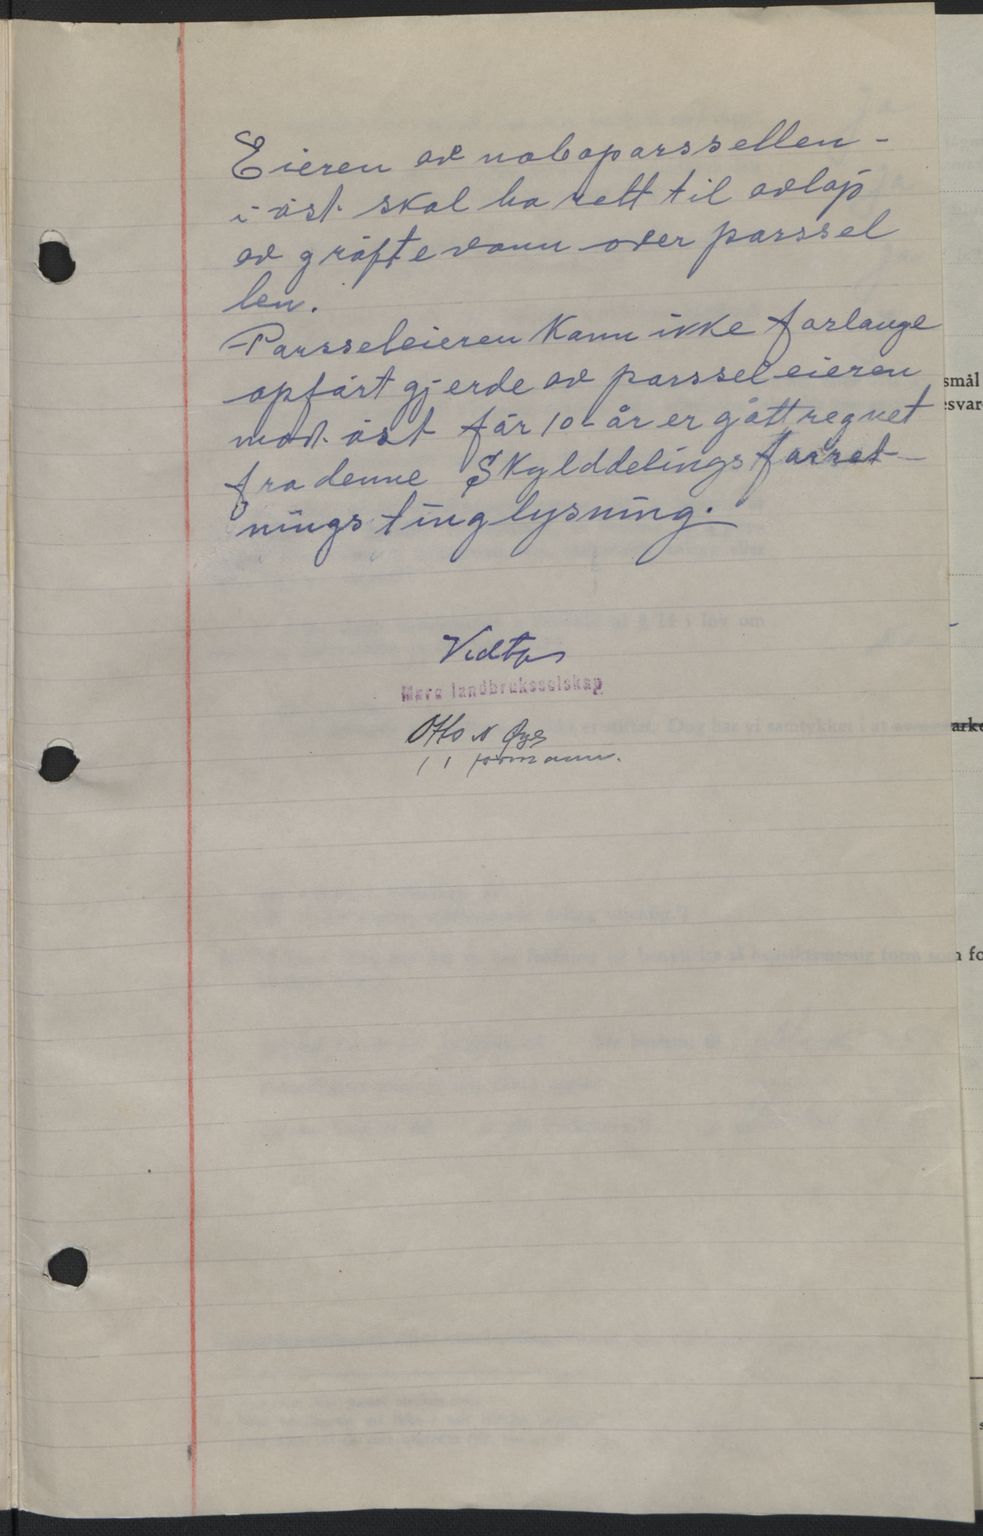 Eieren av naboparssellen-
i øst skal ha rett til avløp
av grøftevann over parssel
len.
Parsseleieren Kann ikke forlange
opført gjerde av parsseleieren
mot øst før 10 år er gått regnet
fra denne Skylddelingsforret-
nings tinglysning.
Vidtas
landbruksselskap
Otto N Øye
formann.
smål
svar
ark
n fo